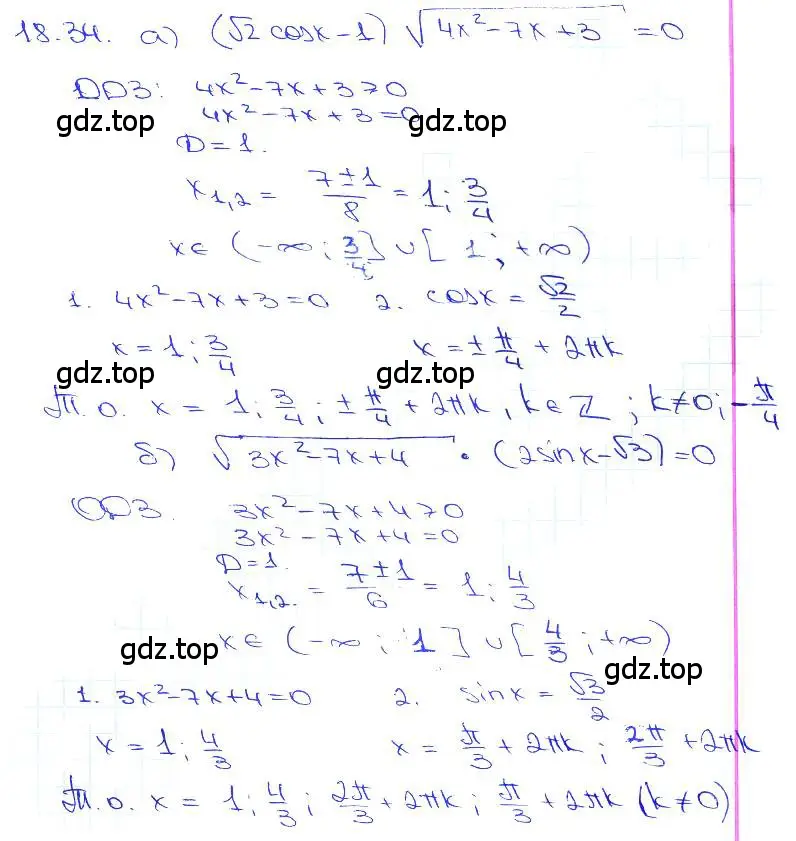 18.34. а) (√2 cosx - 1) √(4x² - 7x + 3) = 0
ОДЗ: 4x² - 7x + 3 ≥ 0
4x² - 7x + 3 = 0
gdz.top gdz.top
D = 1.
x₁,₂ = (7 ± 1)/8 = 1; 3/4
x ∈ (-∞; 3/4] ∪ [1; +∞)
1. 4x² - 7x + 3 = 0 2. cosx = √2/2
x = 1; 3/4 x = ± π/4 + 2πk
gdz.top gdz.top
Т.о. x = 1; 3/4; ± π/4 + 2πk, k ∈ Z; k ≠ 0; - π/4
б) √(3x² - 7x + 4) · (2sinx - √3) = 0
ОДЗ. 3x² - 7x + 4 ≥ 0
3x² - 7x + 4 = 0
D = 1.
x₁,₂. = (7 ± 1)/6 = 1; 4/3
x ∈ (-∞; 1] ∪ [4/3; +∞)
gdz.top gdz.top
1. 3x² - 7x + 4 = 0 2. sinx = √3/2
x = 1; 4/3 x = π/3 + 2πk; 2π/3 + 2πk
Т.о. x = 1; 4/3; 2π/3 + 2πk; π/3 + 2πk (k ≠ 0)